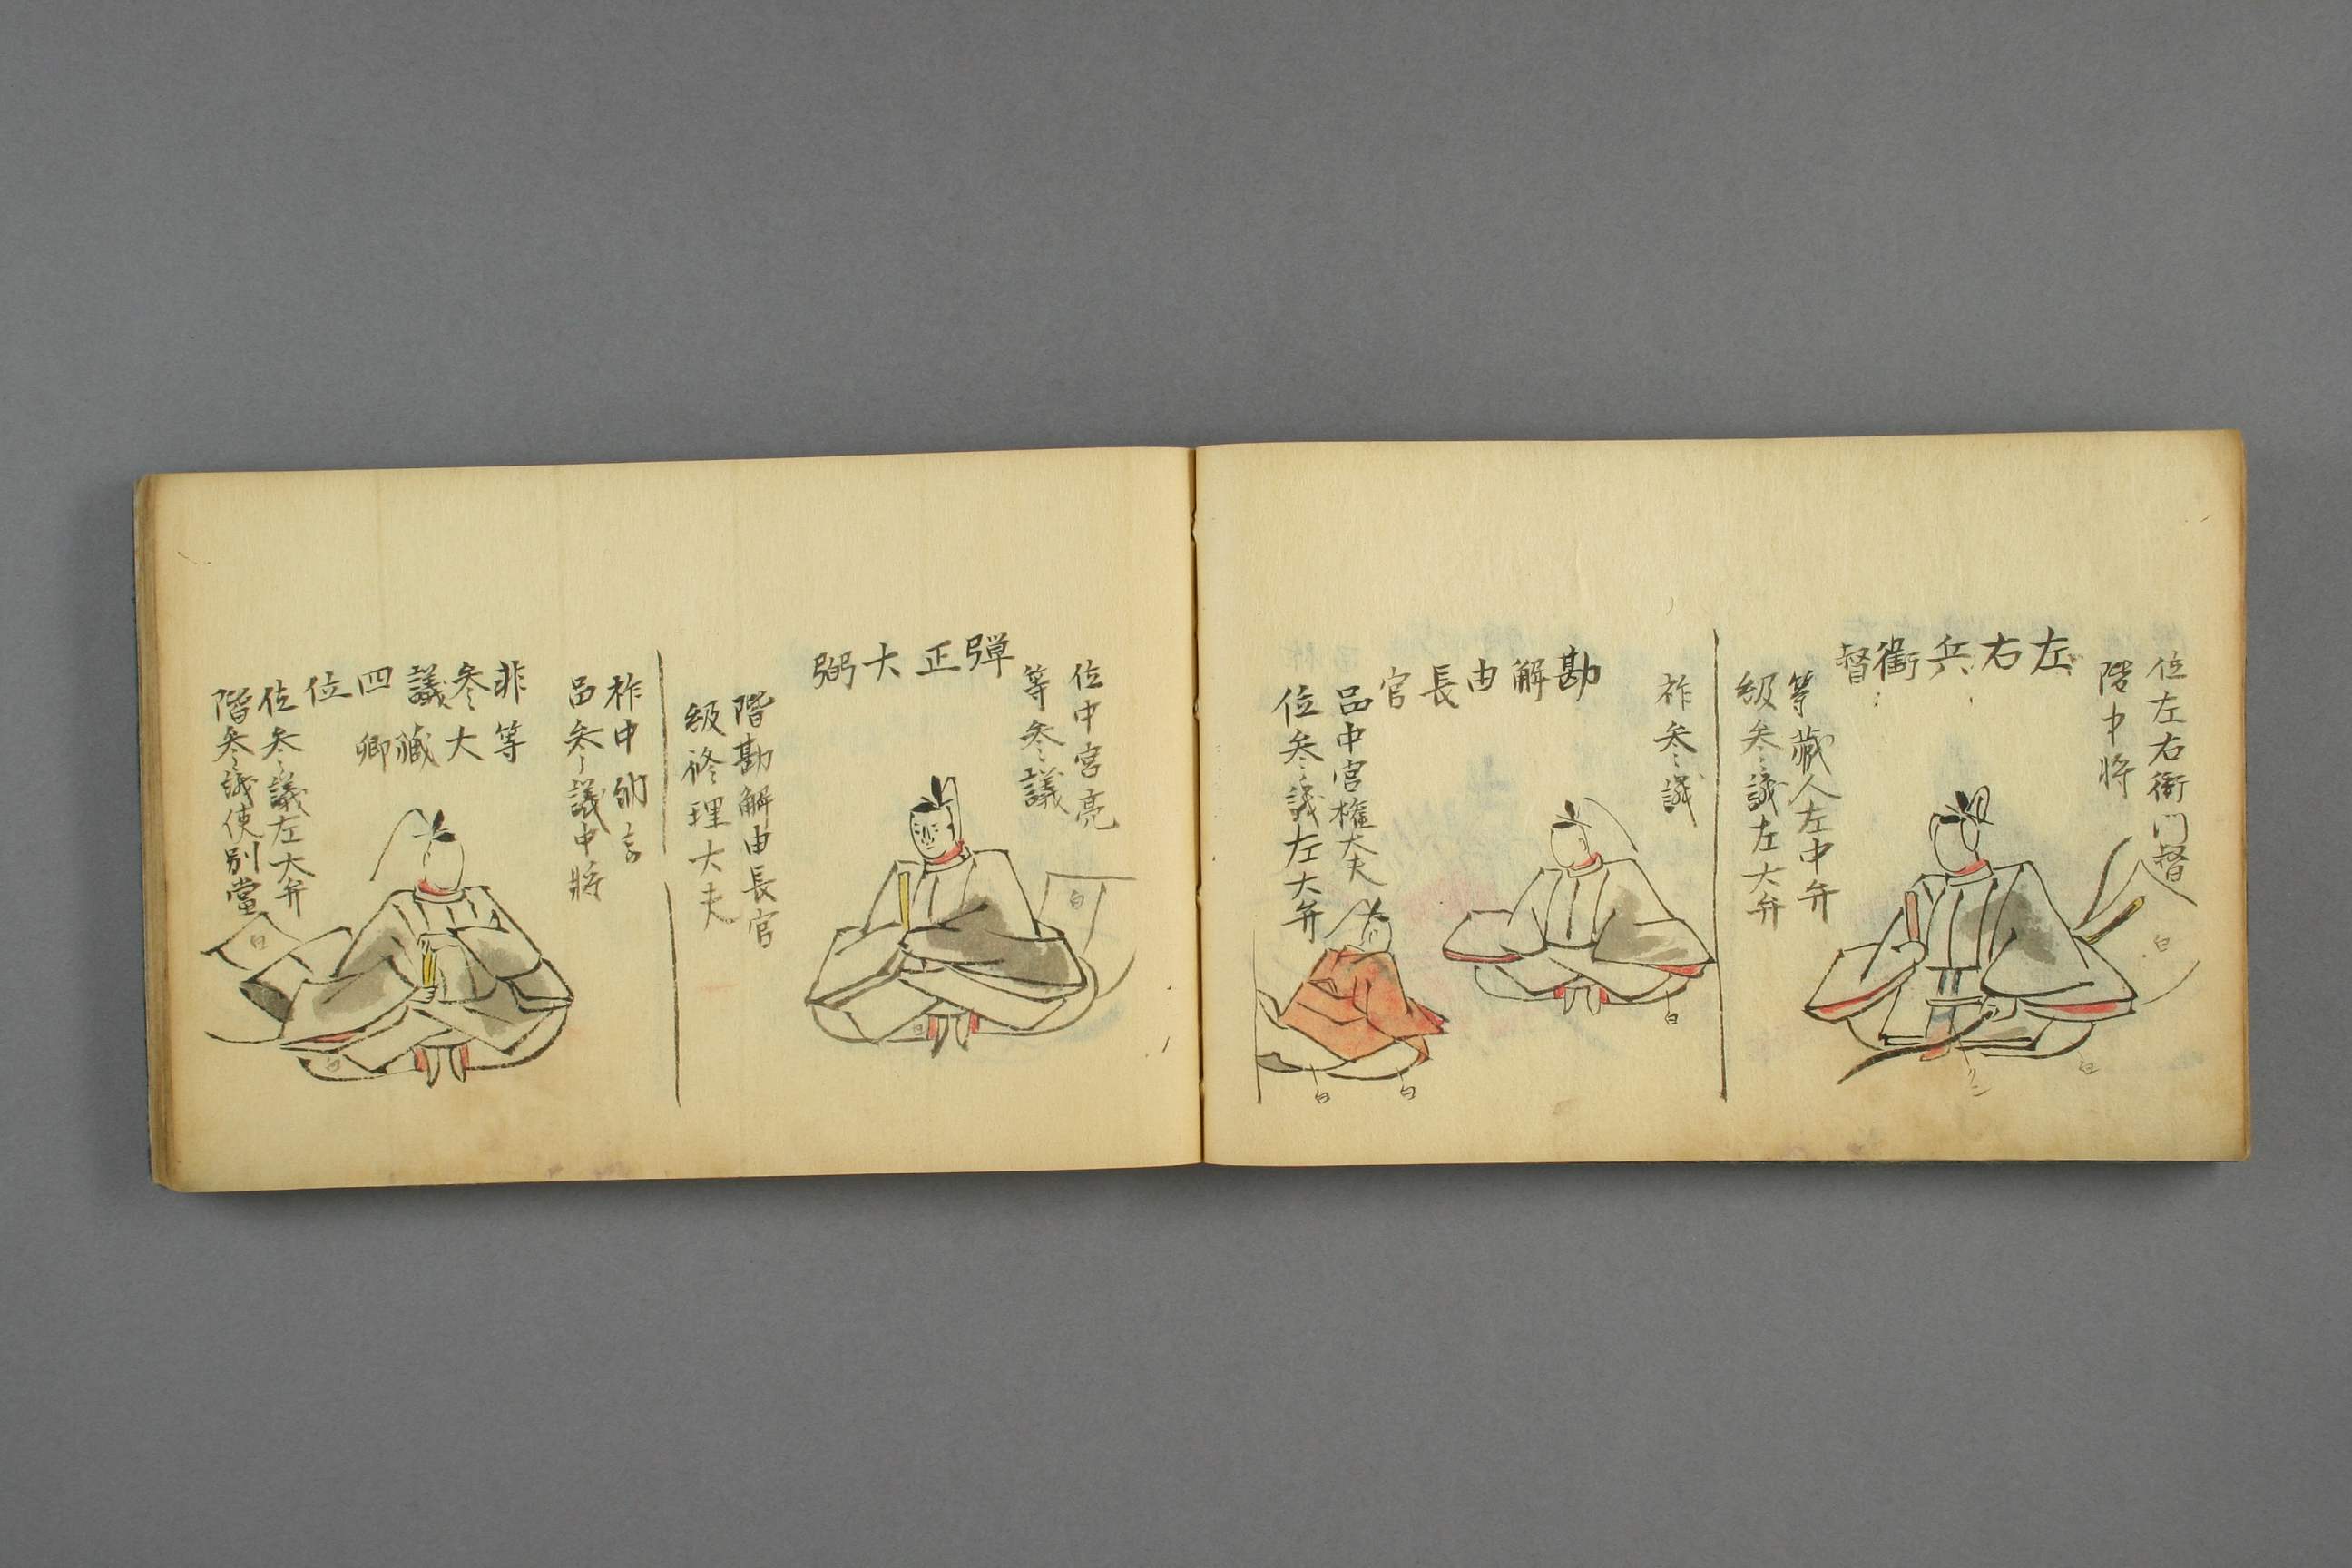 位左右衛門督
階中将
左右兵衛督
等蔵人左中弁
級参議左大弁
白
白
祚参議
勘解由長官
品中宮権大夫
位参議左大弁
白
白
白
位中宮亮
等参議
弾正大弼
白
白
階勘解由長官
級修理大夫
祚中納言
品参議中将
非参議四位
等大蔵卿
位参議左大弁
階参議使別當
白
白